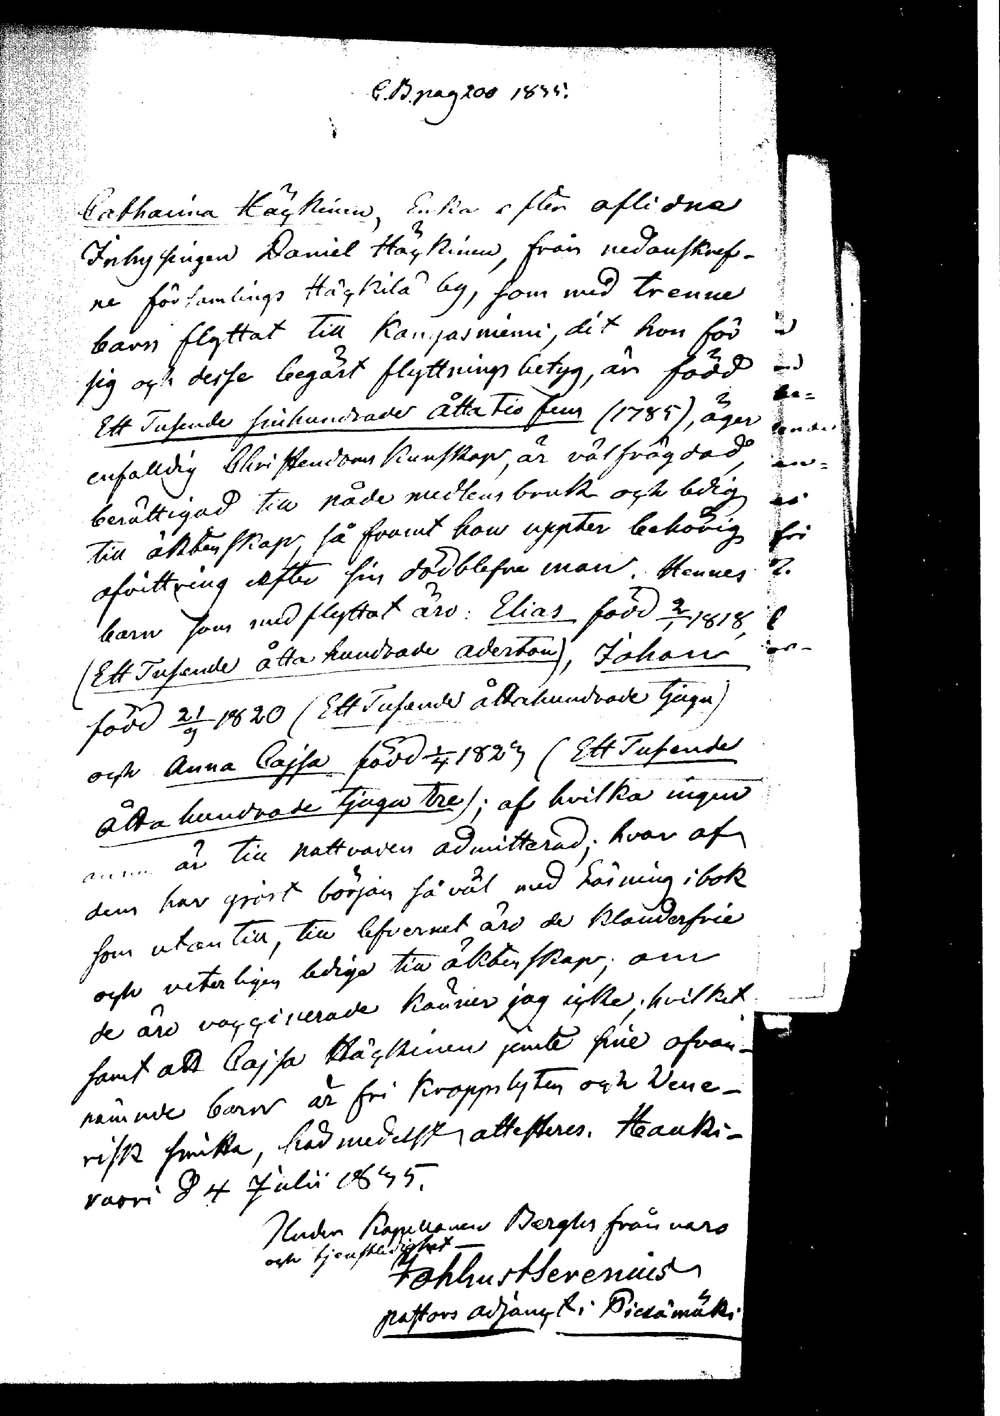 C.B. pag 200 1835.
Catharina Häykinen, Enka efter aflidne
Inhysingen Daniel Häykinen, från nedanskref-
ne församlings Häykilä by, som med trenne
barn flyttat till Kangasniemi, dit hon för
sig och desse begärt flyttningsbetyg, är född
Ett Tusende sjuhundrade åttatio fem (1785), äger
enfaldig Christendoms kunskap, är välfrägdad,
berättigad till nådemedlens bruk och ledig
till äktenskap, så framt hon uppter behörig
afvittring efter sin dödblefne man. Hennes
barn som medflyttat äro: Elias född 2/1 1818,
(Ett Tusende åtta hundrade aderton), Johan
född 21/9 1820 (Ett Tusende åttahundrade tjugu)
och Anna Cajsa född 1/4 1823 (Ett Tusende
åtta hundrade tjugu tre); af hvilka ingen
är till nattvarden admitterad; hvar af
dem har gjort början så väl med läsning i bok
som utan till, till lefvernet äro de klanderfrie
och veterligen ledige till äktenskap; om
de äro vaccinerade känner jag icke; hvilket
samt att Cajsa Häykinen jemte sine ofvan-
nämnde barn är fri kroppslyten och Vene-
risk smitta, hädmedelst attesteras. Hauki-
vuori d 4 Julii 1835.
Under Kapellanen Berghs frånvaro
och tjenstledighet
Joh. Aug. Serenius
pastors adjunct i Pieksämäki